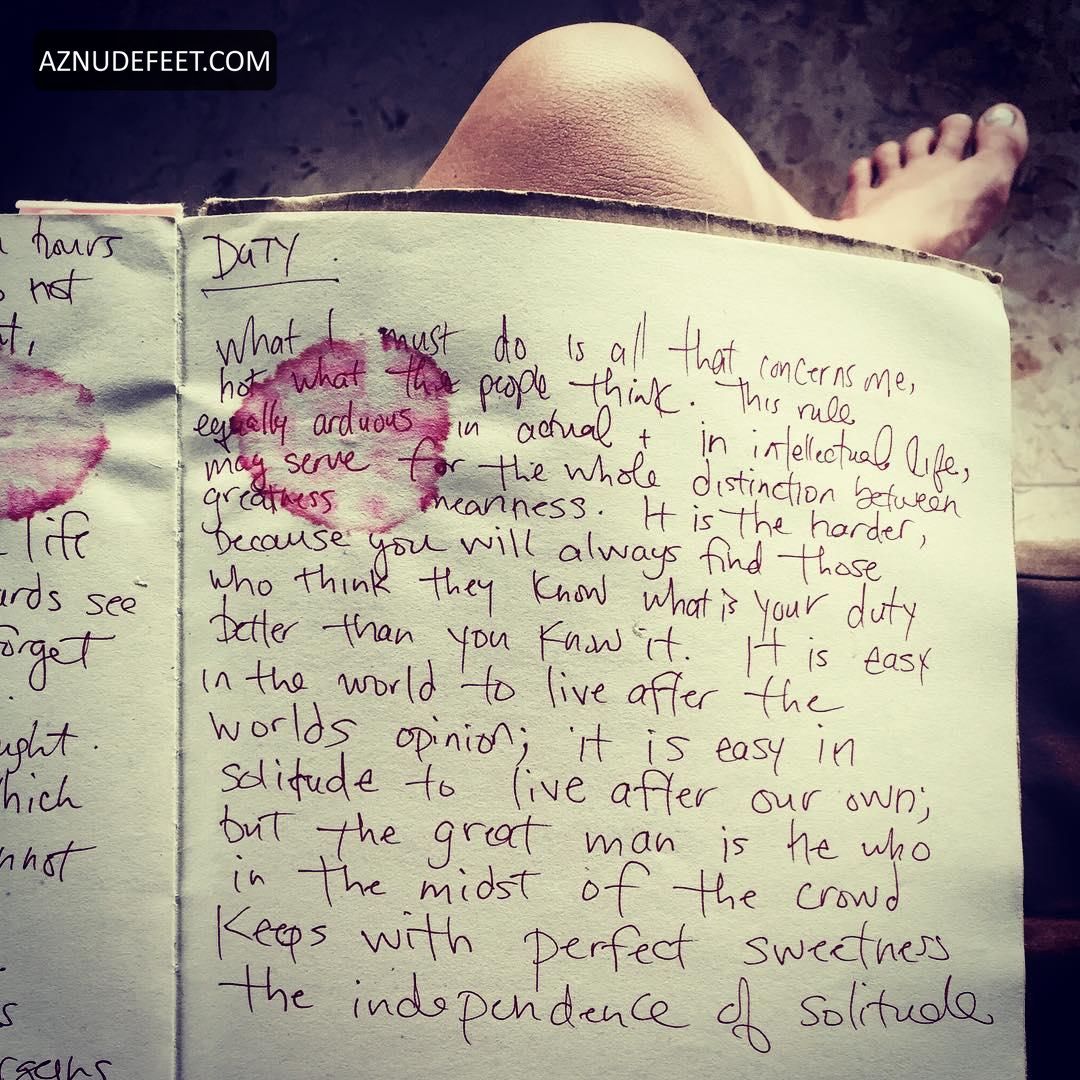 AZNUDEFEET.COM
hours
not
life
see
forget
.
which
DUTY.
What I must do is all that concerns me,
not what the people think. This rule
equally arduous in actual + in intellectual life,
may serve for the whole distinction between
greatness meanness. It is the harder,
because you will always find those
who think they know what is your duty
better than you know it. It is easy
in the world to live after the
worlds opinion; it is easy in
solitude to live after our own;
but the great man is he who
in the midst of the crowd
keeps with perfect sweetness
the independence of solitude